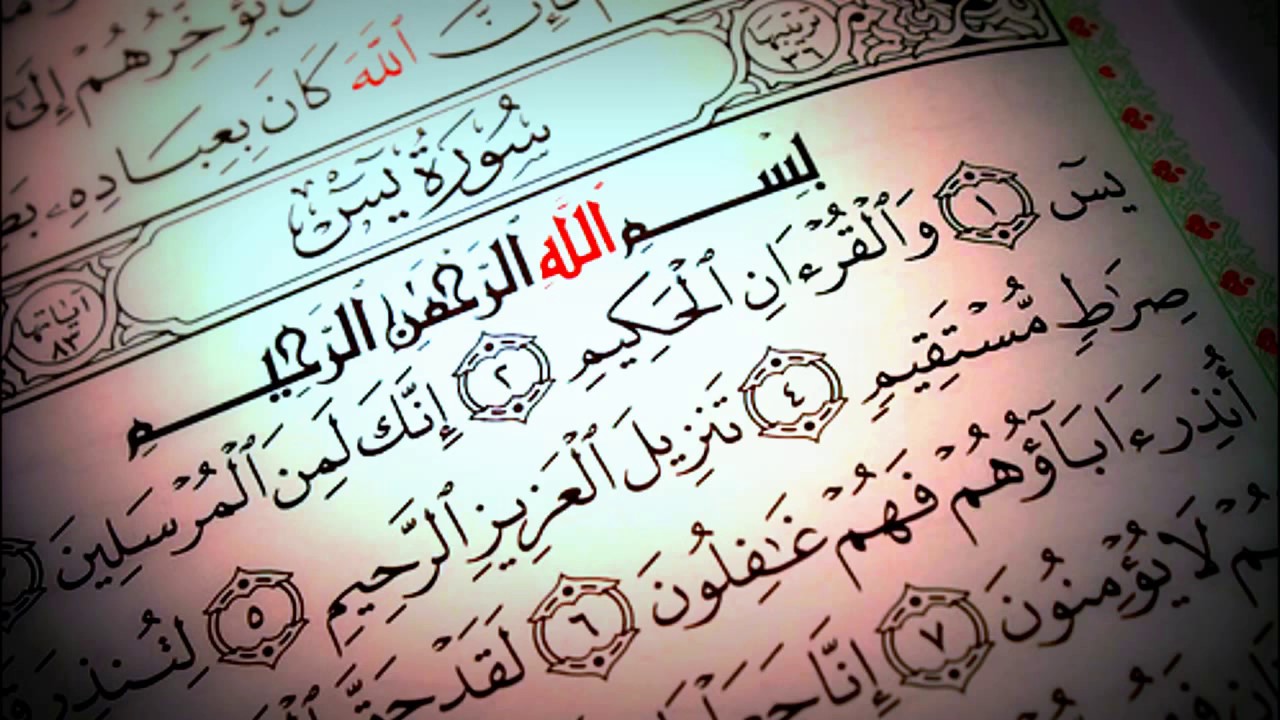 يُؤَخِّرُهُمْ إِلَىٰ
فَإِنَّ ٱللَّهَ كَانَ بِعِبَادِهِۦ
ترتيبها ٣٦
سُورَةُ يسٓ
آياتها ٨٣
بِسْمِ اللَّهِ الرَّحْمَٰنِ الرَّحِيمِ
يسٓ ١ وَٱلْقُرْءَانِ ٱلْحَكِيمِ ٢ إِنَّكَ لَمِنَ ٱلْمُرْسَلِينَ
صِرَٰطٍ مُّسْتَقِيمٍ ٤ تَنزِيلَ ٱلْعَزِيزِ ٱلرَّحِيمِ ٥ لِتُنذِرَ
أُنذِرَ ءَابَآؤُهُمْ فَهُمْ غَٰفِلُونَ ٦ لَقَدْ حَقَّ
لَا يُؤْمِنُونَ ٧ إِنَّا جَعَلْنَا